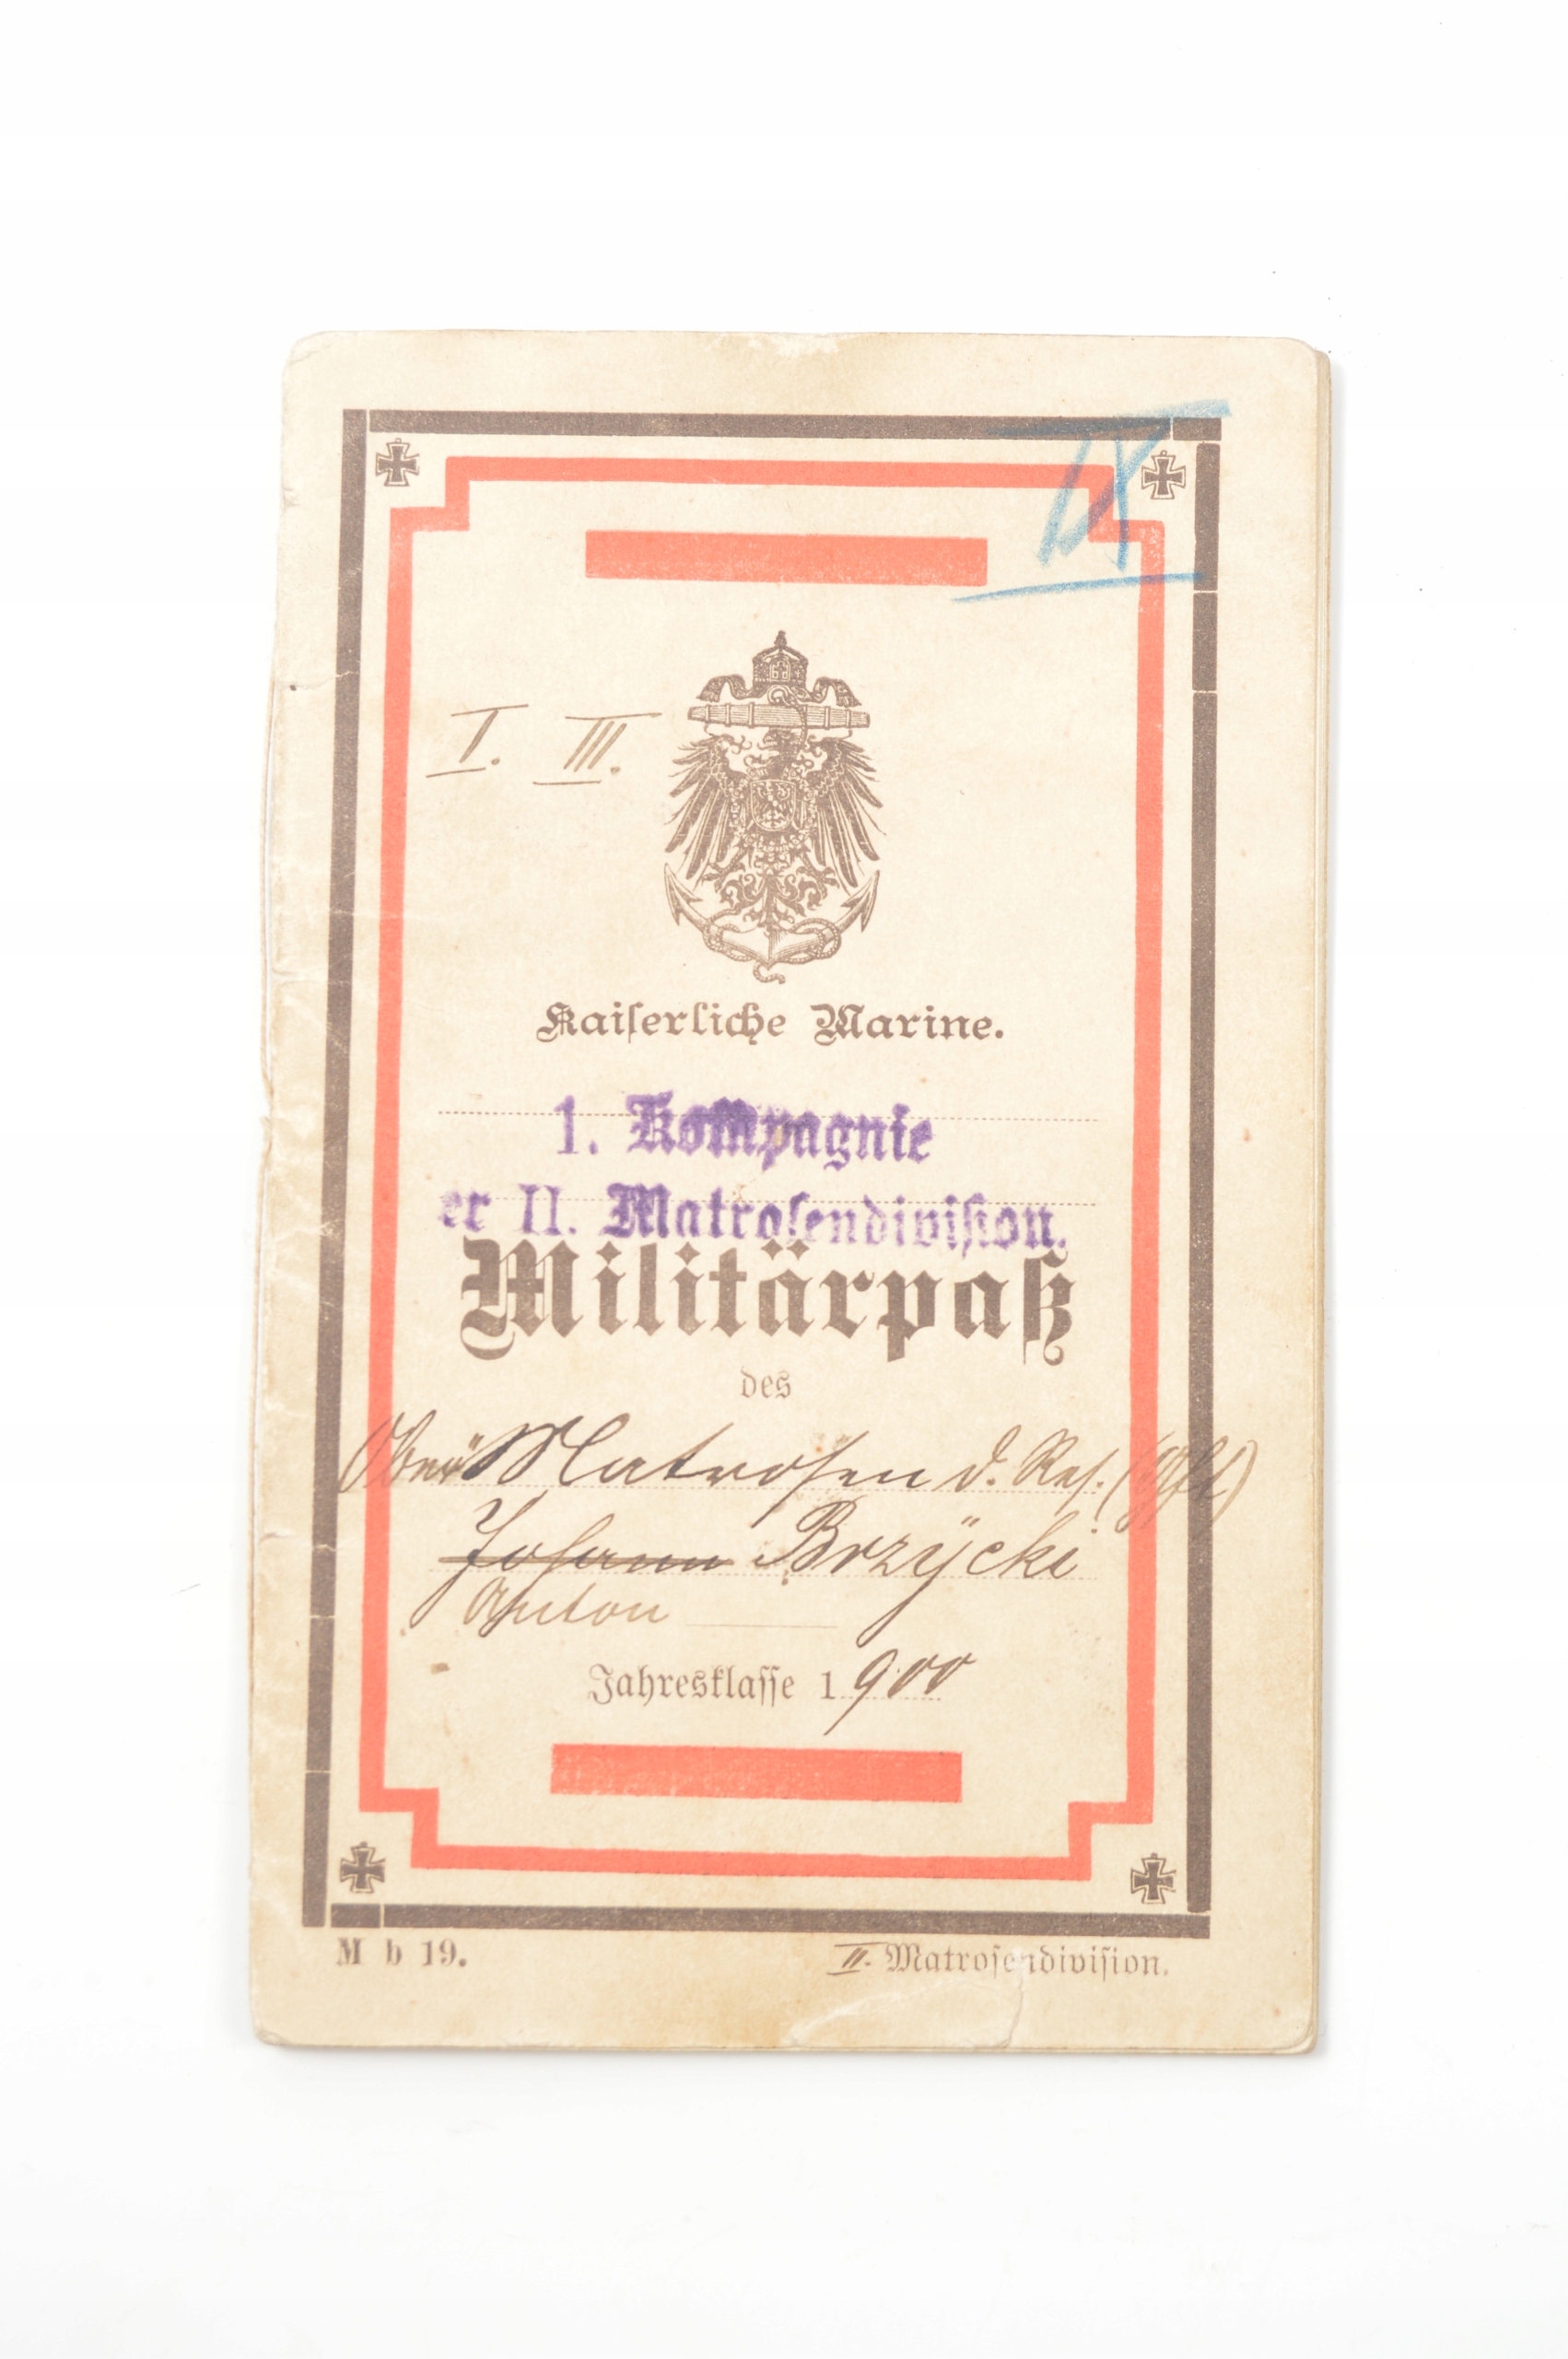 IX
I. III.
Kaiserliche Marine.
1. Kompagnie
er II. Matrosendivision.
Militärpaß
des
Ober Matrosen d. Res.
Johann Brzÿcki
Anton
Jahresklasse 1900
M b 19.
II. Matrosendivision.